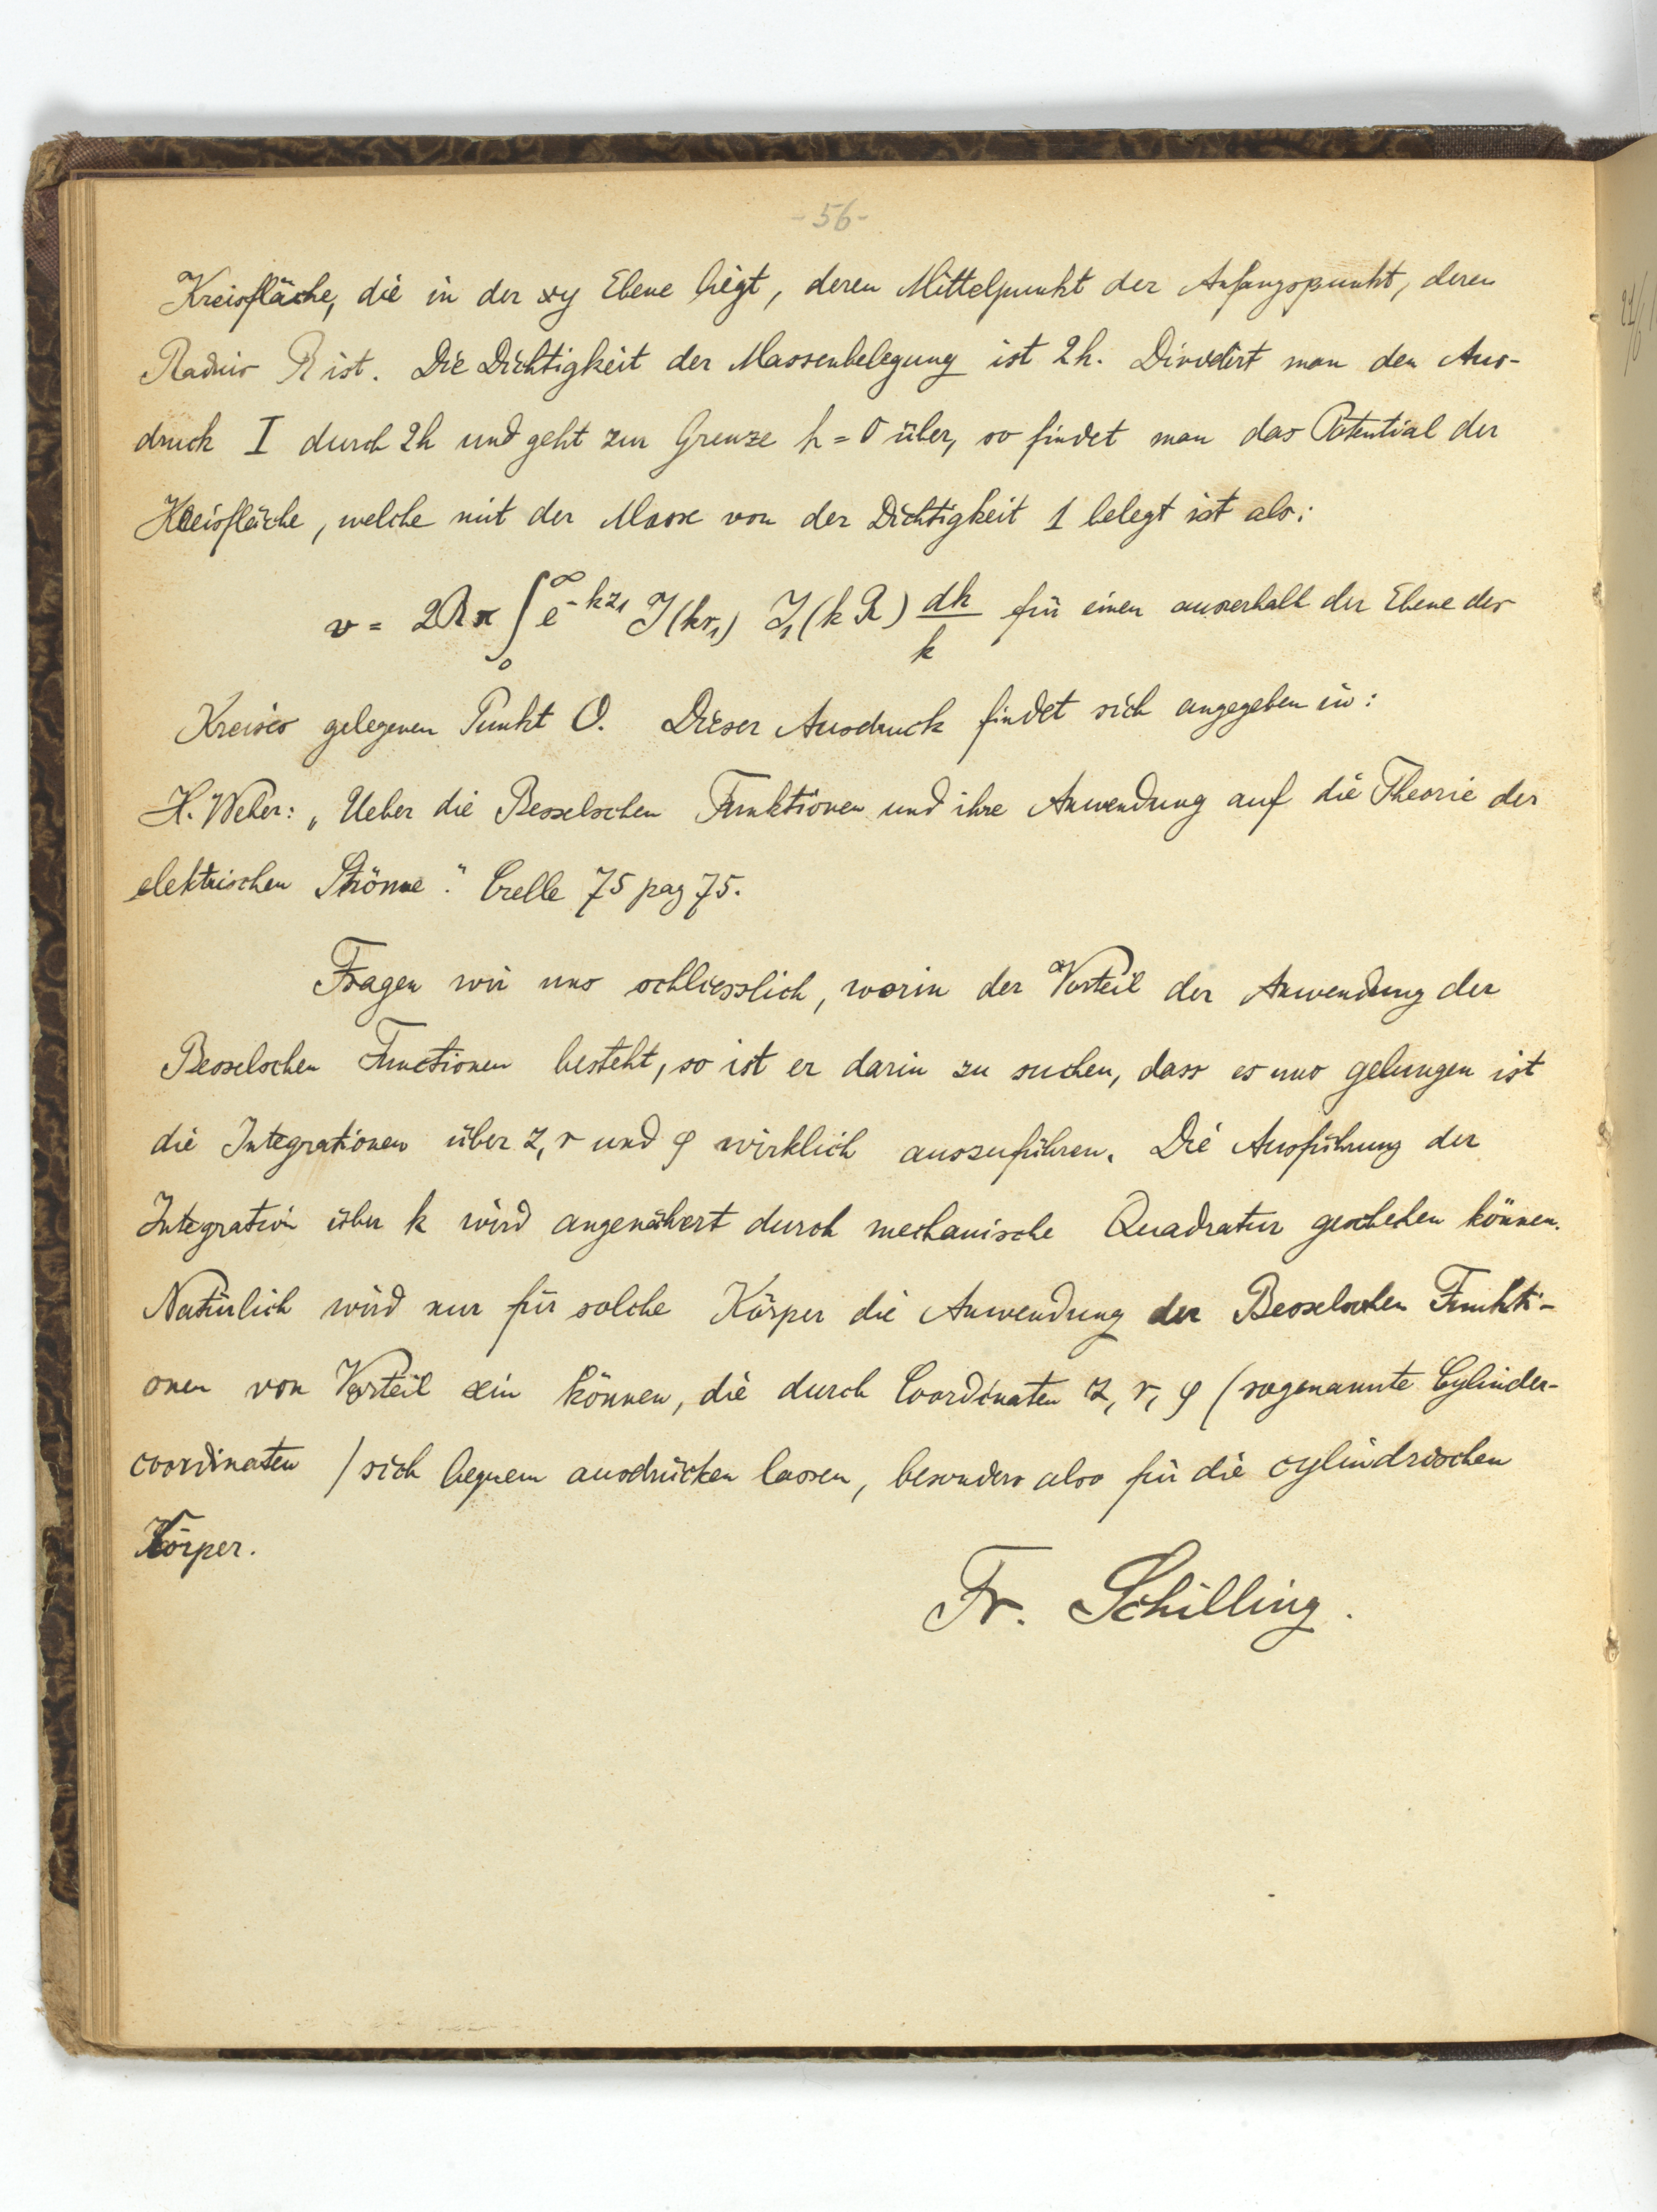 - 56 -
Kreisfläche, die in der xy Ebene liegt, deren Mittelpunkt der Anfangspunkt, deren
Radius R ist. Die Dichtigkeit der Massenbelegung ist 2h. Dividirt man den Aus-
druck I durch 2h und geht zur Grenze h = 0 über, so findet man das Potential der
Kreisfläche, welche mit der Masse von der Dichtigkeit 1 belegt ist als:
v = 2Rπ ∫₀^∞ e^{-kz₁} J(kr₁) J₁(kR) dk/k für einen ausserhalb der Ebene des
Kreises gelegenen Punkt O. Dieser Ausdruck findet sich angegeben in:
H. Weber: „Ueber die Besselschen Funktionen und ihre Anwendung auf die Theorie der
elektrischen Ströme." Crelle 75 pag 75.
Fragen wir uns schliesslich, worin der Vorteil der Anwendung der
Besselschen Functionen besteht, so ist er darin zu suchen, dass es uns gelungen ist
die Integrationen über z, r und φ wirklich auszuführen. Die Ausführung der
Integration über k wird angenähert durch mechanische Quadratur geschehen können.
Natürlich wird nur für solche Körper die Anwendung der Besselschen Funkti-
onen von Vorteil sein können, die durch Coordinaten z, r, φ (sogenannte Cylinder-
coordinaten) sich bequem ausdrücken lassen, besonders also für die cylindrischen
Körper.
Fr. Schilling.